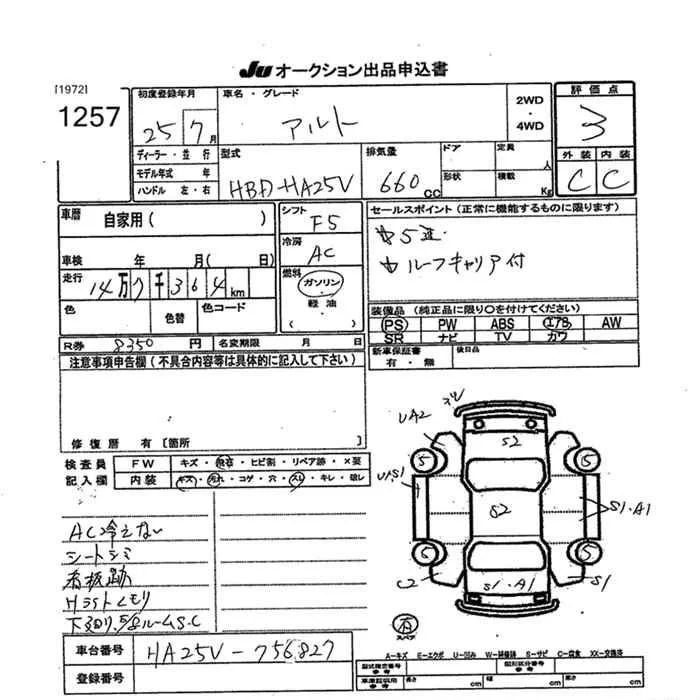 JU オークション出品申込書
[1972]
1257
初度登録年月
25 7月
車名・グレード
アルト
2WD
・
4WD
評価点
3
外装 内装
C C
ディーラー・並行
モデル年式 年
ハンドル 左・右
型式
HBD-HA25V
排気量
660cc
ドア
形状
定員
人
積載
Kg
車歴
自家用( )
車検 年 月( 日)
走行
14万7千364km
色
色替
色コード
シフト
F5
冷房
AC
燃料
ガソリン
・
軽油
・
( )
セールスポイント(正常に機能するものに限ります)
ルーフキャリア付
装備品(純正品に限り○を付けてください)
PS PW ABS エアB AW
SR ナビ TV カワ
R券 8350円 名変期限 月 日
新車保証書
有・無
後日品
注意事項申告欄(不具合内容等は具体的に記入して下さい)
修復歴 有[箇所 ]
検査員
記入欄
FW
キズ・飛石・ヒビ割・リペア跡・×要
内装
キズ・汚れ・コゲ・穴・スレ・キレ・破レ
AC冷えない
シートシミ
看板跡
下廻り、S/Sルーム S.C
車台番号
HA25V-756827
登録番号
UA2
S2
5 5
U1S1
S2
S1・A1
5 5
C2
S1・A1
S1
有
スペア
A-キズ E-エクボ U-凹み W-補修跡 S-サビ C-腐食 XX-交換済
型式指定番号
参考
類別区分番号
参考
車庫証明用
参考
長さ cm 幅 cm 高さ cm